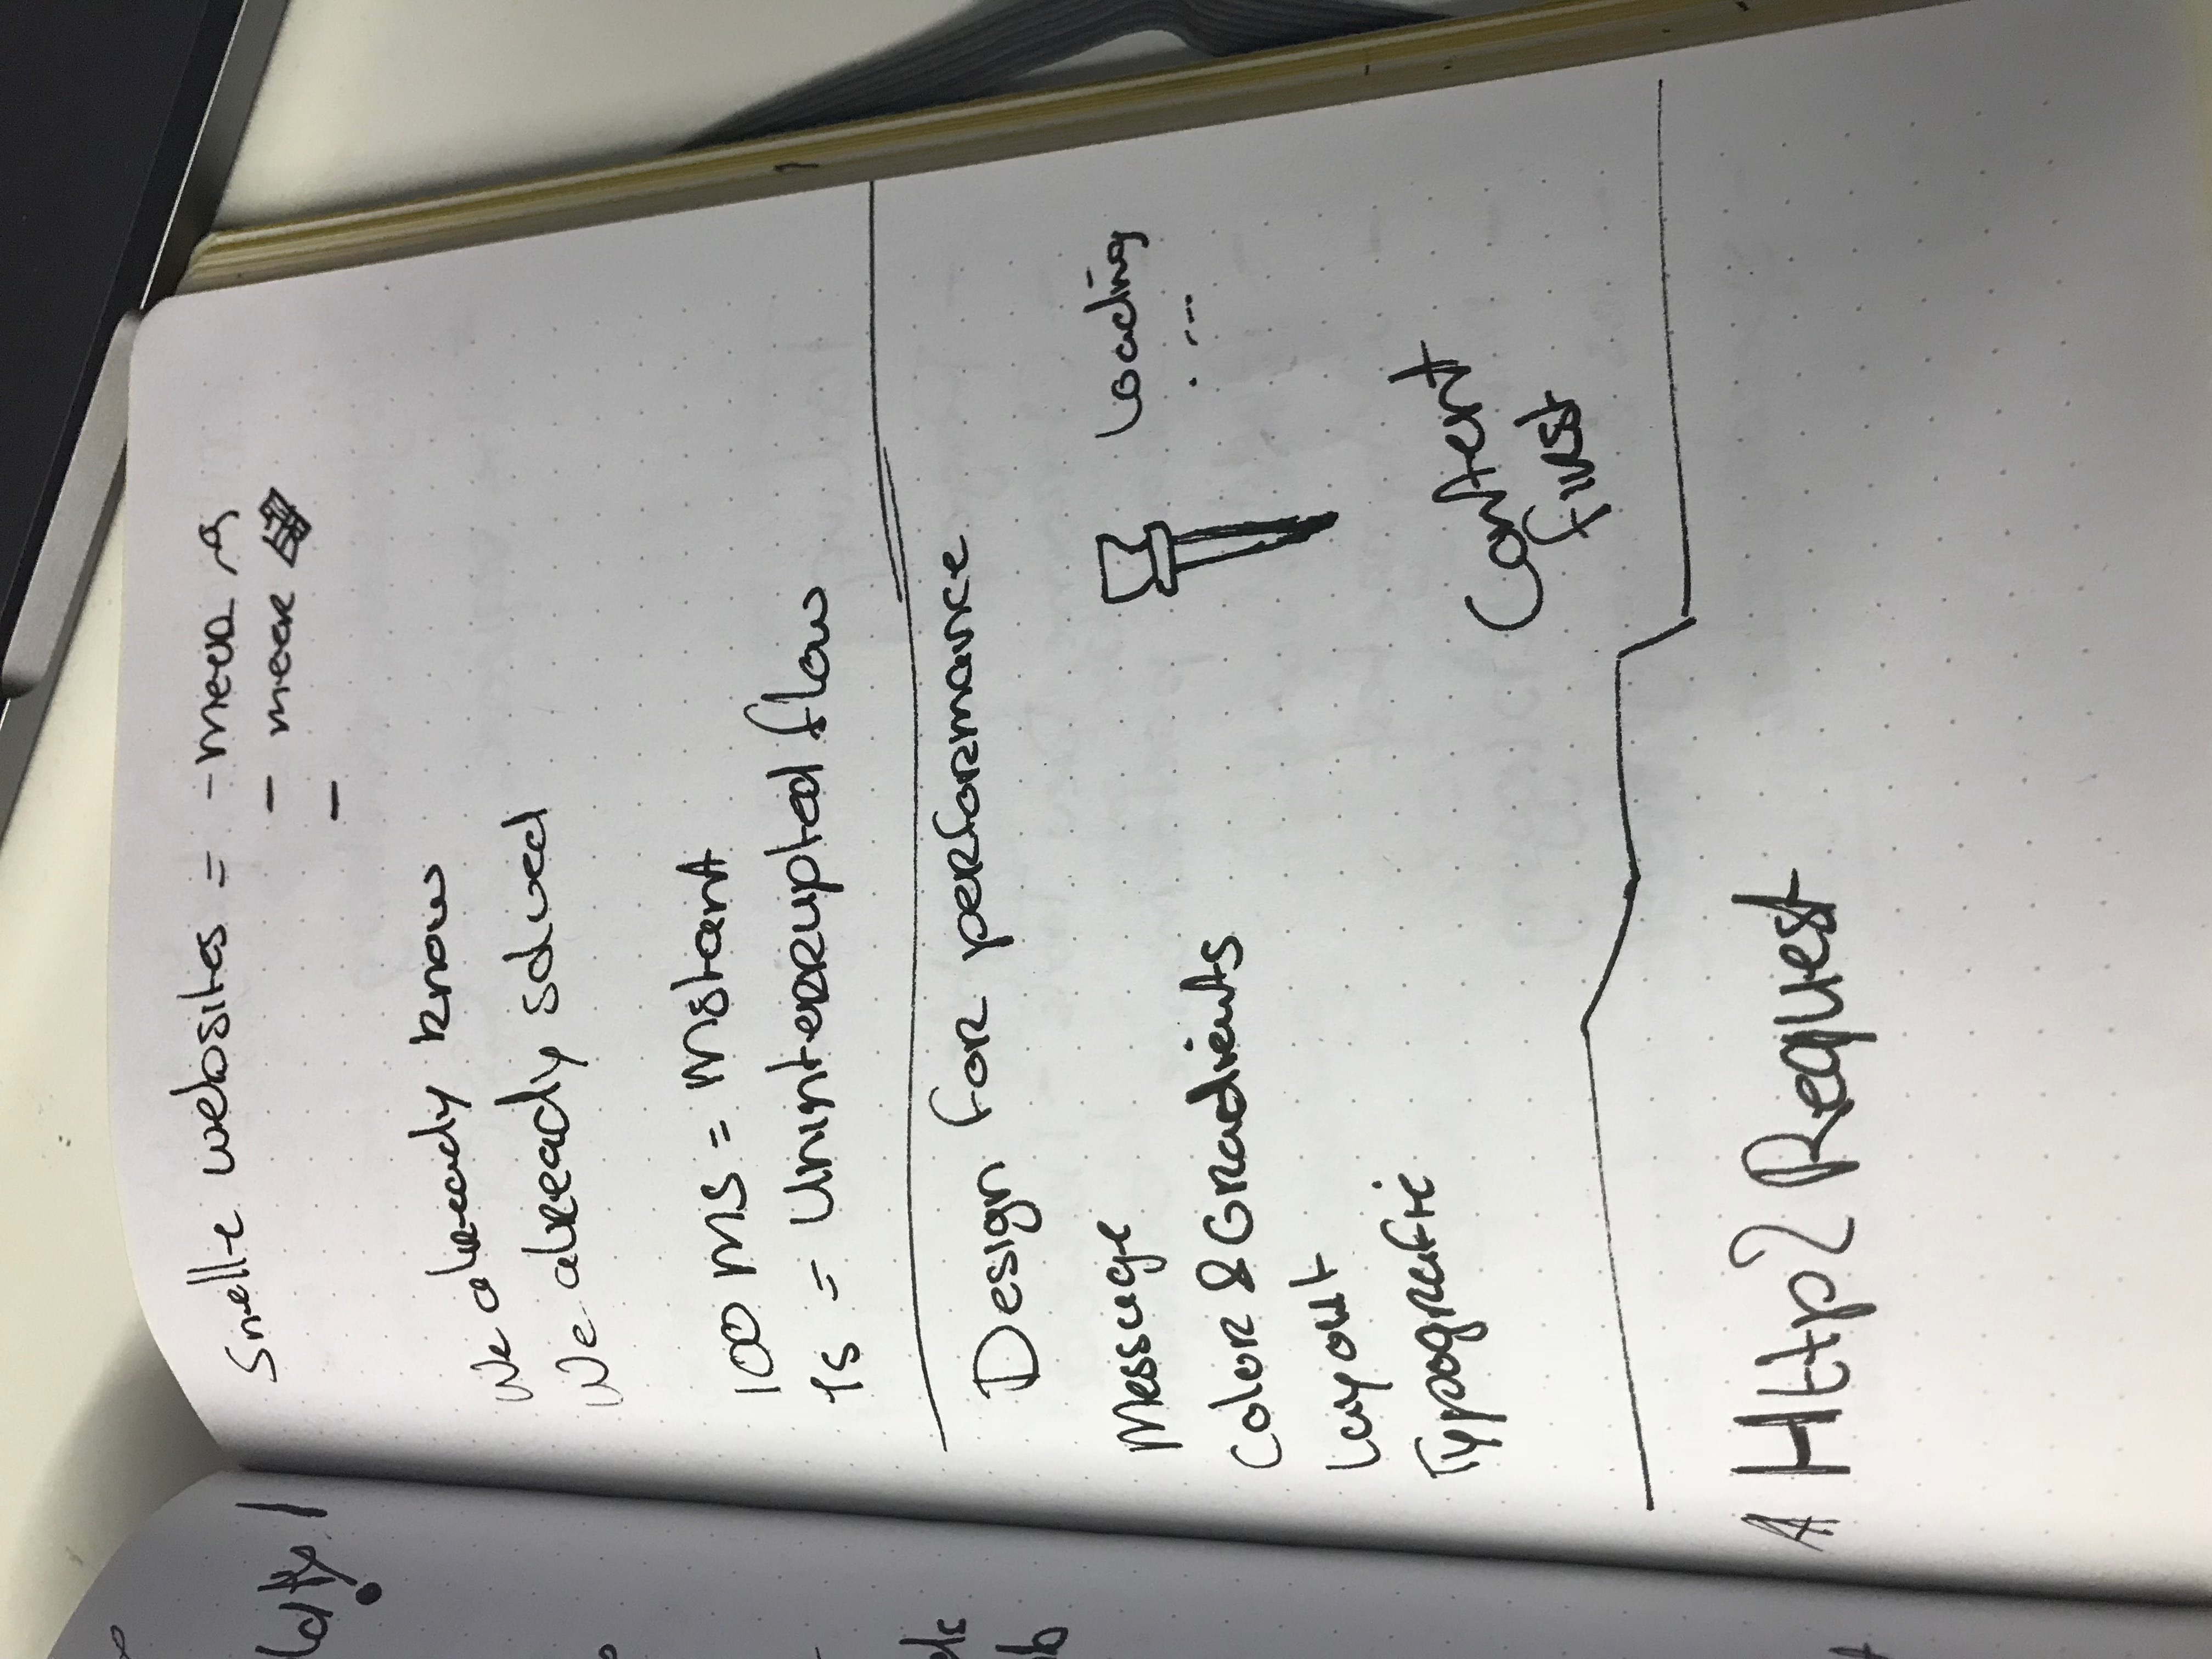 Snelle websites = - meer
- meer
-
We already know
We already solved
100 ms = Instant
1s = Uninterrupted flow
Design for performance
Message
Color & Gradients
Layout
Typografie
Loading
....
Content
first
A Http2 Request